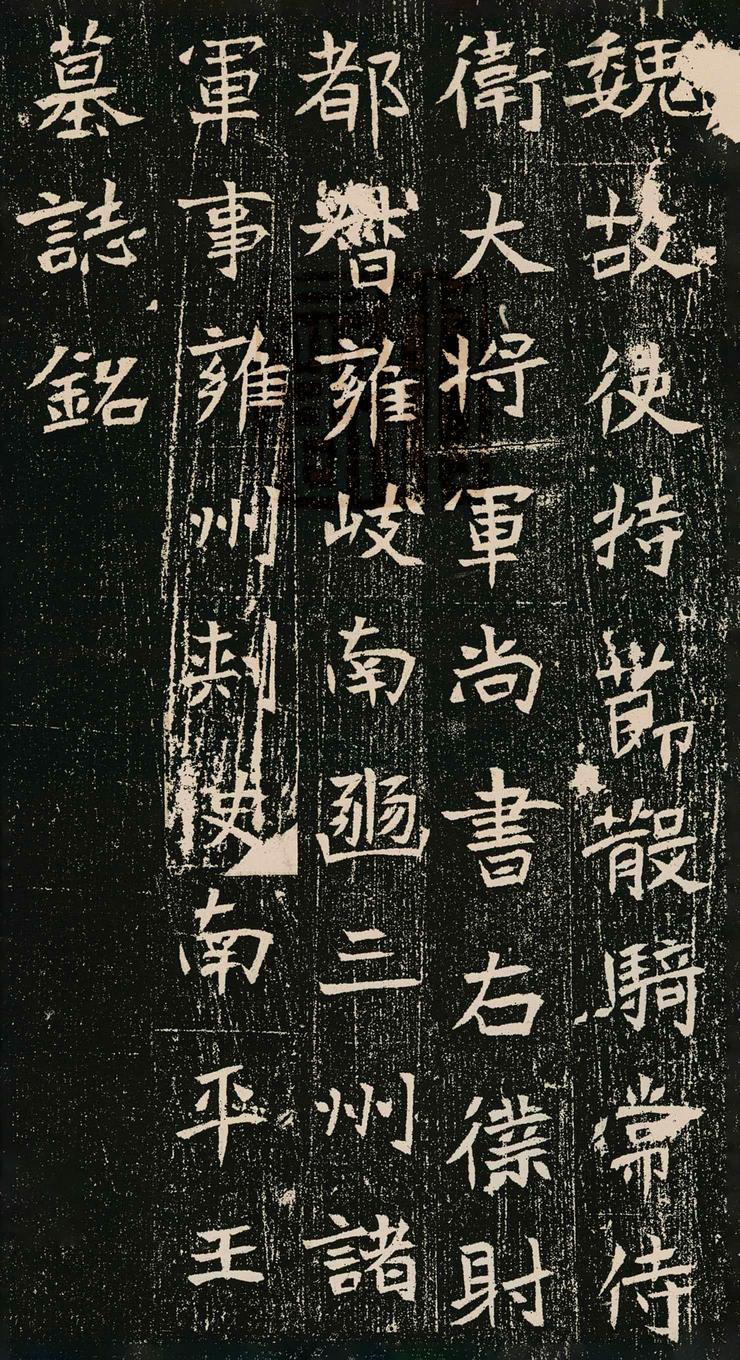 魏故使持節散騎常侍
衛大将軍尚書右僕射
都督雍岐南豳三州諸
軍事雍州刺史南平王
墓誌銘